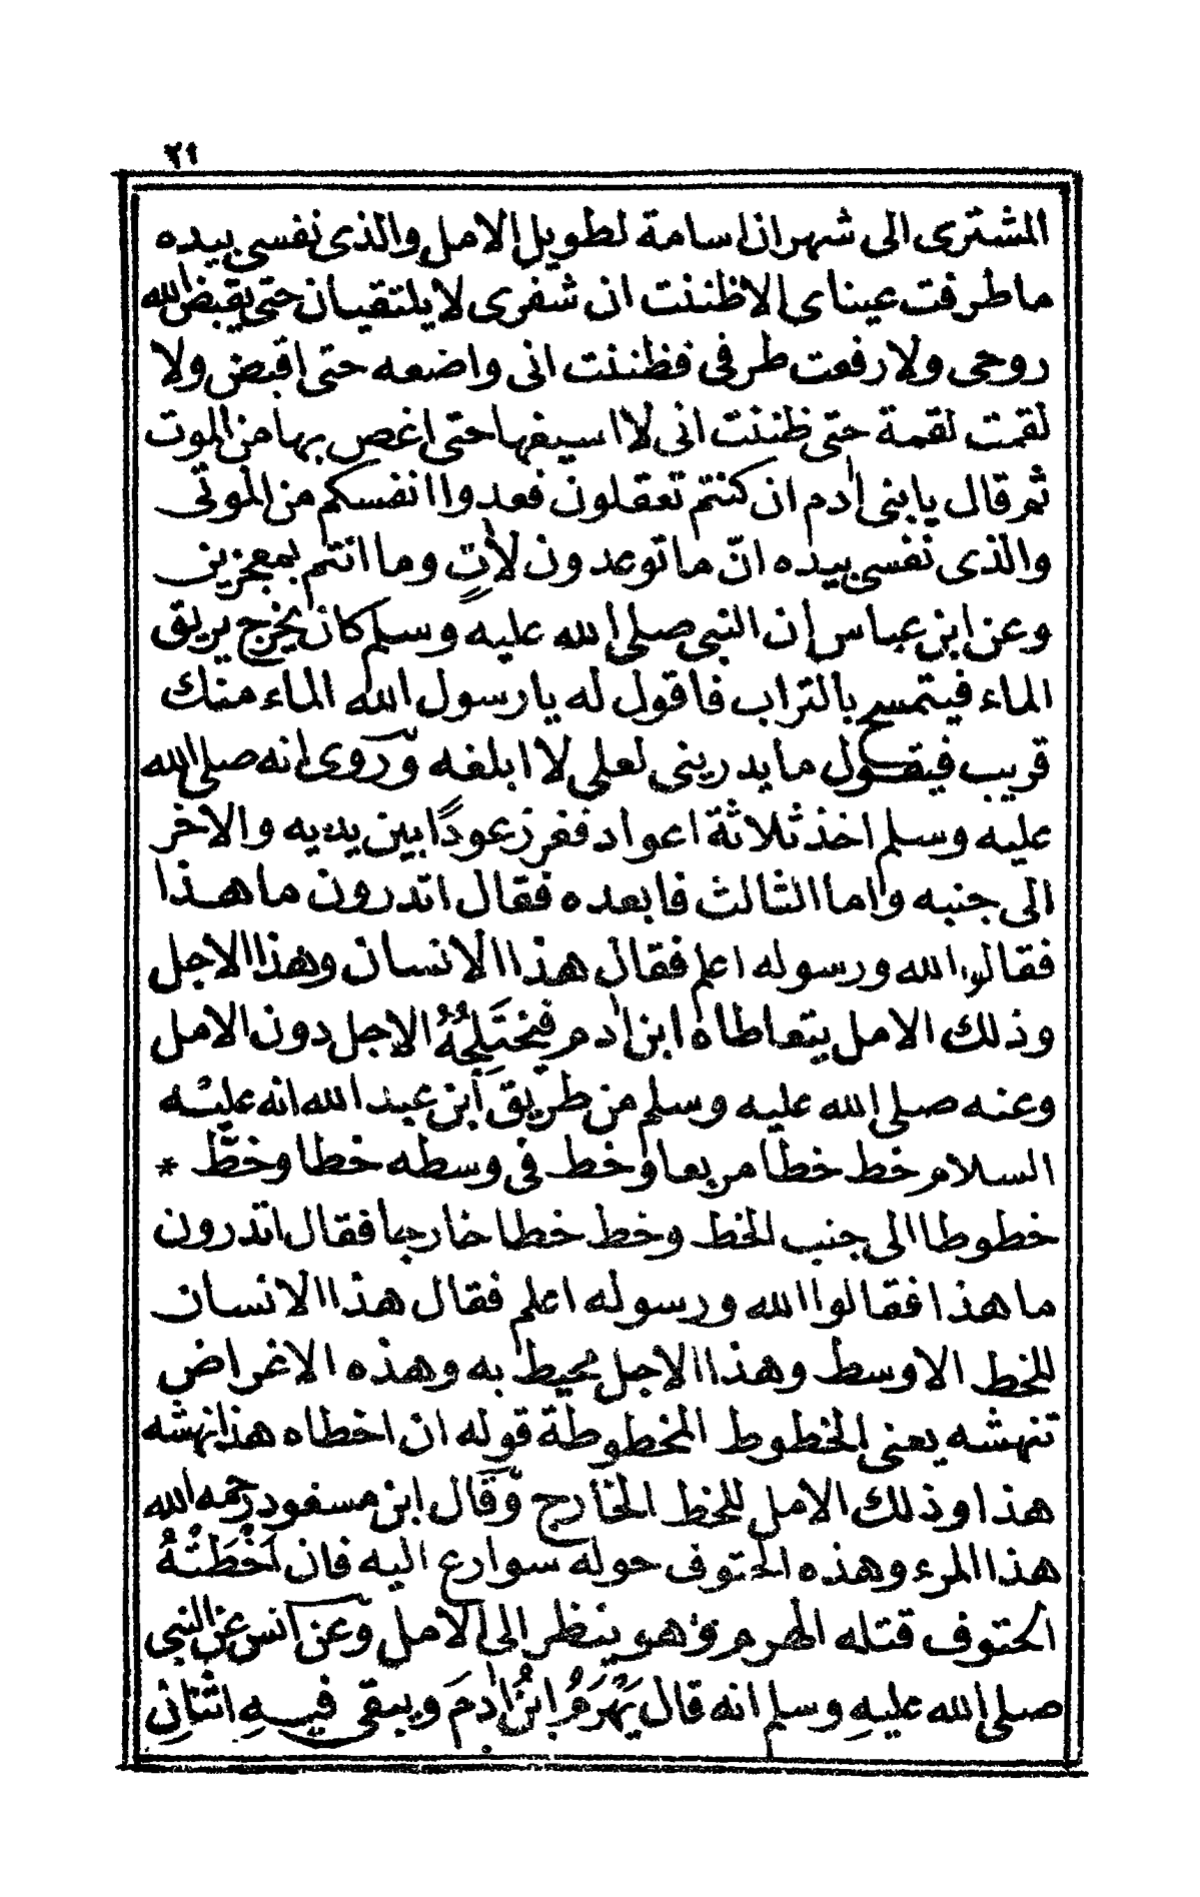 ٢١
المشترى الى شهر ان اسامة لطويل الامل والذى نفسى بيده
ما طرفت عيناى الا ظننت ان شفرى لا يلتقيان حتى يقبض الله
روحى ولا رفعت طرفى فظننت انى واضعه حتى اقبض ولا
لقمت لقمة حتى ظننت انى لا اسيغها حتى اغص بها من الموت
ثم قال يا بنى اٰدم ان كنتم تعقلون فعدوا انفسكم من الموتى
والذى نفسى بيده انّ ما توعدون لاٰتٍ وما انتم بمعجزين
وعن ابن عباس ان النبى صلى الله عليه وسلم كان يخرج يريق
الماء فيتمسح بالتراب فاقول له يا رسول الله الماء منك
قريب فيقول ما يدرينى لعلى لا ابلغه وروى انه صلى الله
عليه وسلم اخذ ثلاثة اعواد فغرز عودًا بين يديه والاخر
الى جنبه واما الثالث فابعده فقال اتدرون ما هذا
فقالوا الله ورسوله اعلم فقال هذا الانسان وهذا الاجل
وذلك الامل يتعاطاه ابن اٰدم فيختَلِجُهُ الاجل دون الامل
وعنه صلى الله عليه وسلم من طريق ابن عبد الله انه عليه
السلام خط خطا مربعا وخط فى وسطه خطا وخطّ *
خطوطا الى جنب الخط وخط خطا خارجا فقال اتدرون
ما هذا فقالوا الله ورسوله اعلم فقال هذا الانسان
للخط الاوسط وهذا الاجل محيط به وهذه الاغراض
تنهشه يعنى الخطوط المخطوطة قوله ان اخطاه هذا نهشه
هذا وذلك الامل للخط الخارج وقال ابن مسعود رحمه الله
هذا المرء وهذه الحتوف حوله سوارع اليه فان اَخْطَئَتْهُ
الحتوف قتله الهرم وهو ينظر الى الامل وعن انس عن النبى
صلى الله عليه وسلم انه قال يَهْرَمُ ابْنُ اٰدمَ ويبقى فيهِ اثنانِ